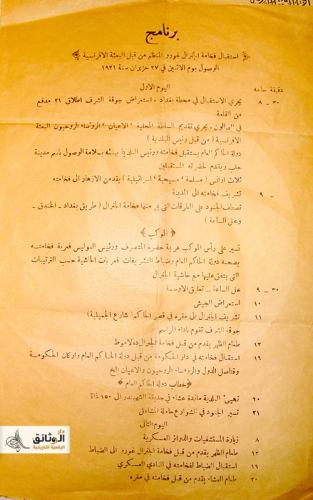 برنامج
استقبال فخامة الجنرال غورو المنظم من قبل البعثة الافرنسية
الوصول يوم الاثنين في ٢٧ حزيران سنة ١٩٢١
اليوم الاول
دقيقة ساعة
٣٠ - ٨ يجري الاستقبال في محطة بغداد - استعراض جوقة الشرف اطلاق ٢١ مدفع
من القلعة
في صالون ويجري تقديم السلطة المحلية الاعيان الرؤساء الروحيون البعثة
الافرنسية ( من قبل رئيس البلدية )
دولة الحاكم العام يستقبل فخامته ورئيس البلدية يهنئه بسلامة الوصول باسم مدينة
حلب ويقدم لحضرته المستقبلين
ثلاث اوانس ( مسلمة - مسيحية - اسرائيلية ) يقدمن الازهار الى فخامته
- ٩ تشريف فخامته الى المدينة
تصطف الجنود على الطرقات التي يمر منها فخامة الجنرال ( طريق بغداد - الخندق -
وعلى الساعة )
( الموكب )
تسير على رأس الموكب عربة حضرة المتصرف ورئيس البوليس فعربة فخامته
يصحبه دولة الحاكم العام وضباط التشريفات فعربات الحاشية حسب الترتيبات
التي يتفق عليها مع حاشية الجنرال
٣٠ - ٩ على الساعة - تعليق الاوسمة
١٠ استعراض الجيش
١١ تشريف الجنرال الى مقره في قصر الحاكم ( شارع الجميلية )
جوقة الشرف تقوم باداء المراسم
١٢ طعام الظهر يقدم من قبل فخامة الجنرال ده لاموط
١٦ استقبال فخامته في دار الحكومة من قبل دولة الحاكم العام واركان الحكومة
وقناصل الدول والرؤساء الروحيون والاعيان الخ
( خطاب دولة الحاكم العام )
٢٠ تهيئ البلدية مائدة عشاء في حديقة الشهبندر الى ١٥٠ ذاتا
٢١ تسير الجنود في الشوارع حاملة المشاعل
اليوم الثاني
٨ زيارة المستشفيات والدوائر العسكرية
١٢ طعام الظهر يقدم من قبل فخامة الجنرال غورو الى الضباط
١٦ استقبال الضباط لفخامته في النادي العسكري
٢٠ طعام العشاء يقدم من قبل فخامته في مقره
دار
الوثائق
الرقمية التاريخية